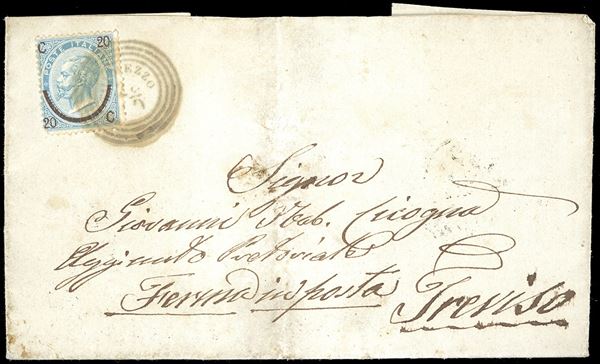 C 20
POSTE ITALIANE
20 C
EZZO
Signor
Giovanni Nob. Cicogna
Aggiunto Pretoriale
Ferma in posta Treviso